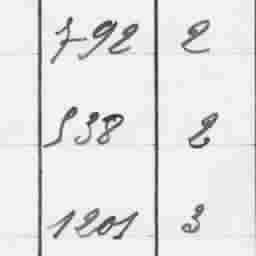 792 2
538 2
1201 3